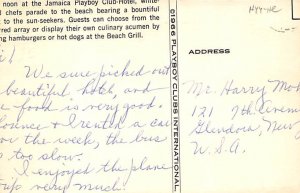 noon at the Jamaica Playboy Club-Hotel, white
ed chefs parade to the beach bearing a bountiful
to the sun-seekers. Guests can choose from the
red array or display their own culinary acumen by
ng hamburgers or hot dogs at the Beach Grill.
We sure picked out
beautiful hotel, and
food is very good.
& I rented a car
the week, the bus
too slow.
I enjoyed the plane
very much!
©1966 PLAYBOY CLUBS INTERNATIONAL
ADDRESS
Mr. Harry
121 9th Avenue
Glendora, New
U.S.A.